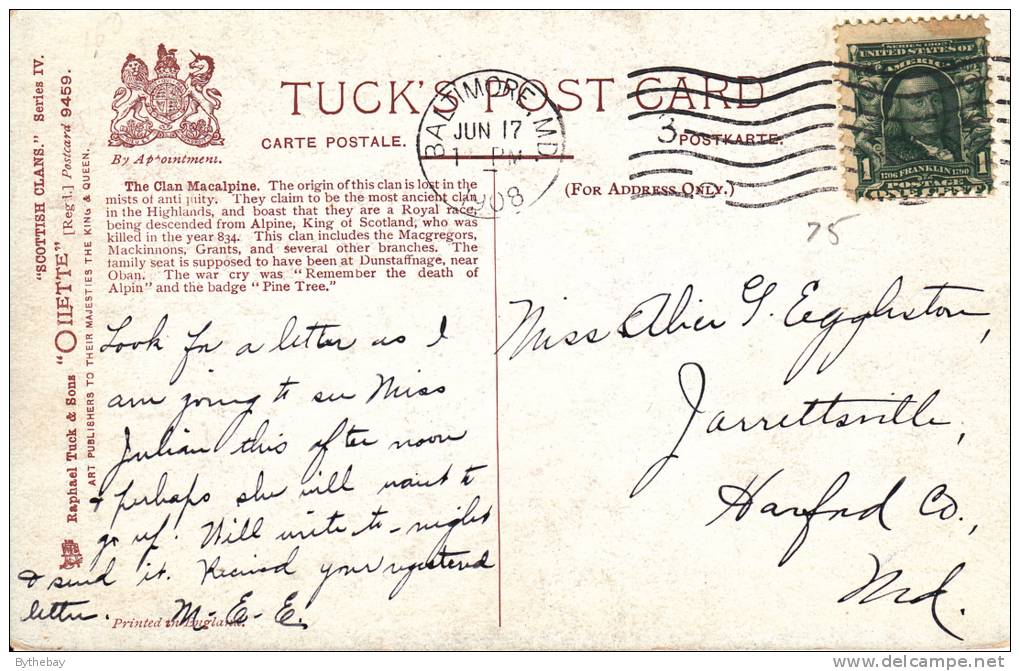 "SCOTTISH CLANS." Series IV.
Raphael Tuck & Sons "OILETTE" [Regd.] Postcard 9459.
ART PUBLISHERS TO THEIR MAJESTIES THE KING & QUEEN.
By Appointment.
TUCK'S POST CARD
CARTE POSTALE.
POSTKARTE.
(FOR ADDRESS ONLY.)
BALTIMORE, MD.
JUN 17
1 PM
1908
3
SERIES 1902
UNITED STATES OF
AMERICA
1 1
1706 FRANKLIN 1790
POSTAGE
75
The Clan Macalpine. The origin of this clan is lost in the
mists of antiquity. They claim to be the most ancient clan
in the Highlands, and boast that they are a Royal race,
being descended from Alpine, King of Scotland, who was
killed in the year 834. This clan includes the Macgregors,
Mackinnons, Grants, and several other branches. The
family seat is supposed to have been at Dunstaffnage, near
Oban. The war cry was "Remember the death of
Alpin" and the badge "Pine Tree."
Look for a letter as I
am going to see Miss
Julian this after noon
& perhaps she will want to
go up. Will write to-night
& send it. Received your registered
letter. M-E-E.
Printed in England.
Miss Alice G. Eggleston,
Jarrettsville,
Harford Co.,
Md.
Bythebay
www.delcampe.net